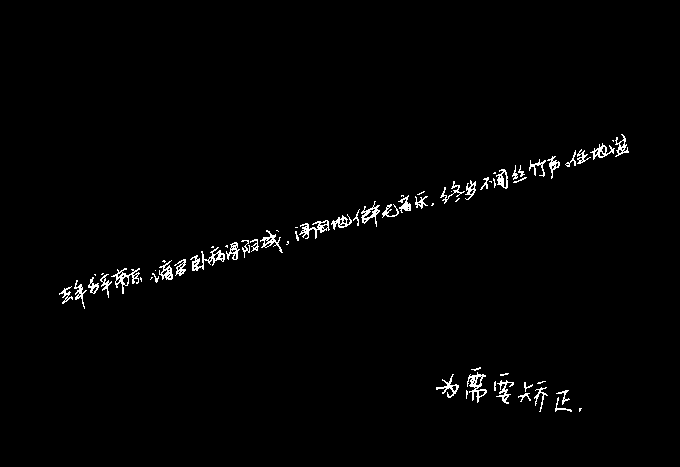 去年辞帝京,谪居卧病浔阳城,浔阳地僻无音乐,终岁不闻丝竹声。住地湓
为需要矫正.